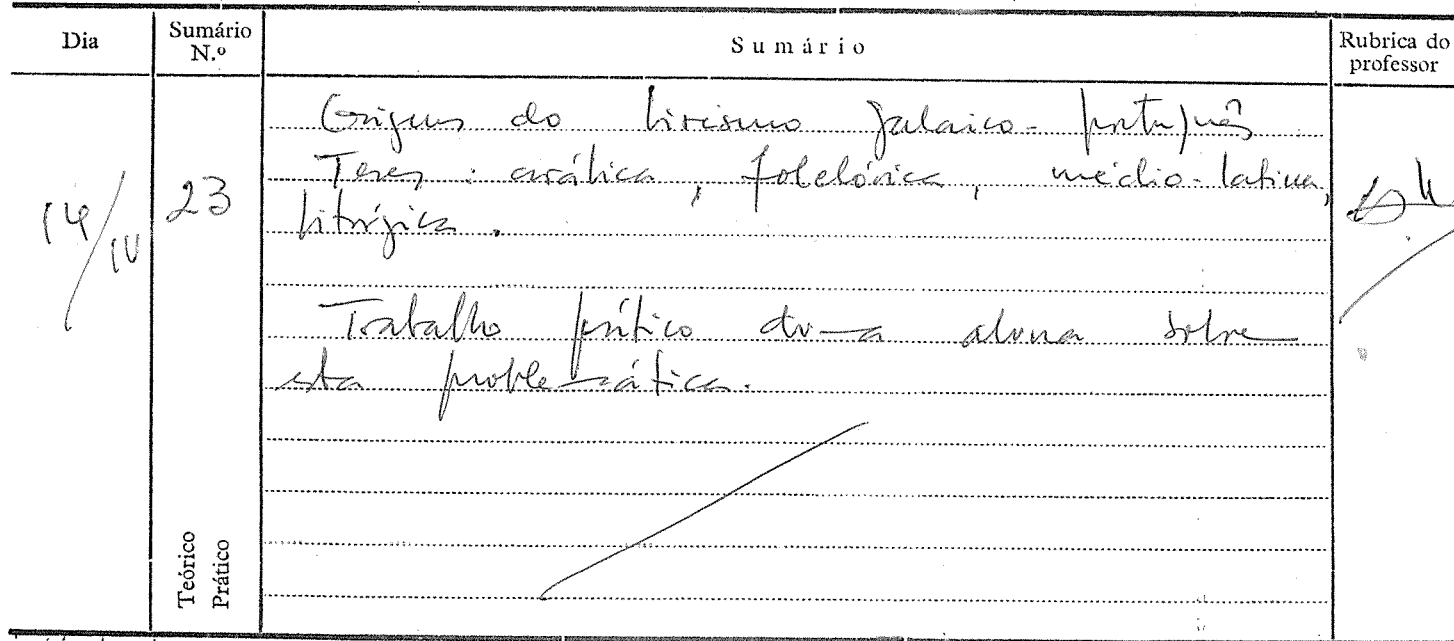 Dia
Sumário N.º
Sumário
Rubrica do professor
14/IV
23
Origens do lirismo galaico-português
Teses: arábica, folclórica, médio-latina,
litúrgica.
Trabalho prático duma aluna sobre
esta problemática.
Teórico
Prático